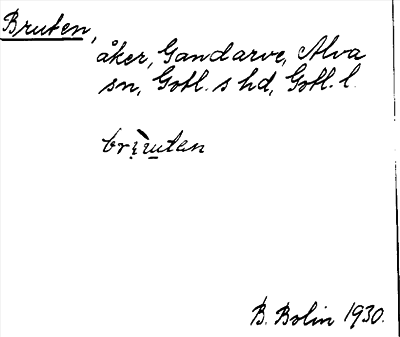 Bruten,
åker, Gandarve, Alva
sn, Gotl. s hd, Gotl. l.
B. Bolin 1930.